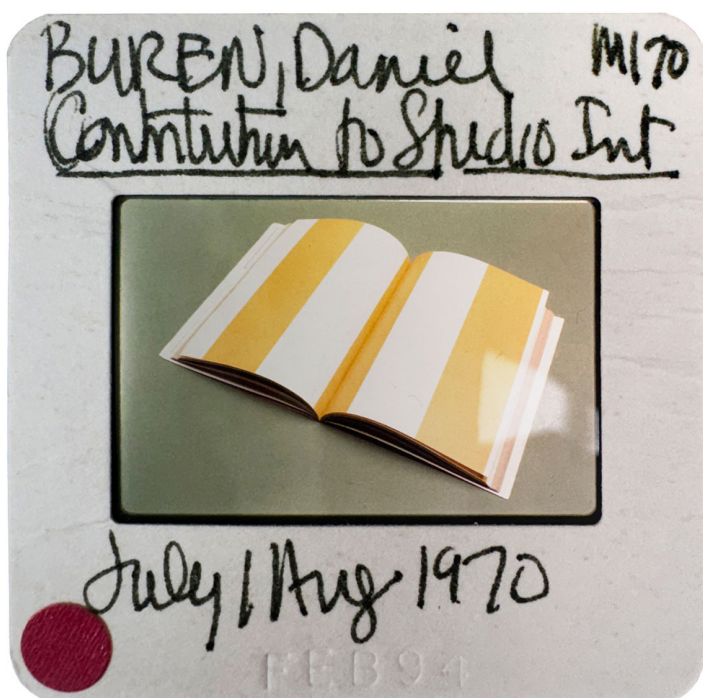 BUREN, Daniel M170
Contribution to Studio Int
July / Aug 1970
FEB 94